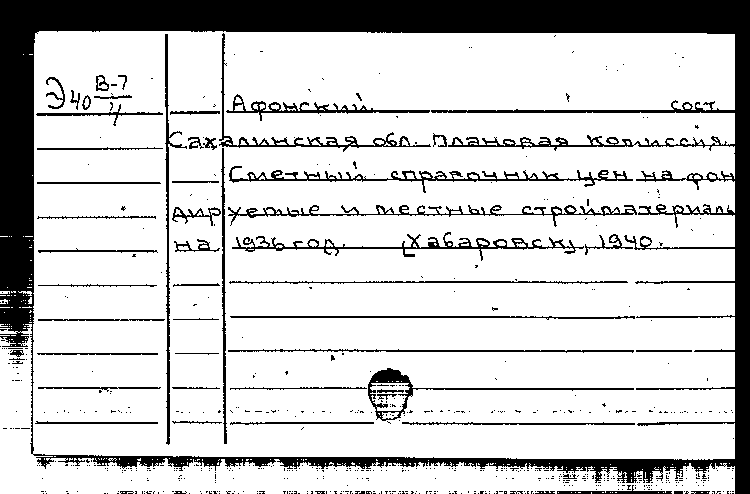 Э40 В-7/4
Афонский сост.
Сахалинская обл. Плановая комиссия.
Сметный справочник цен на фон
дируемые и местные стройматериалы
на 1936 год. [Хабаровск], 1940.